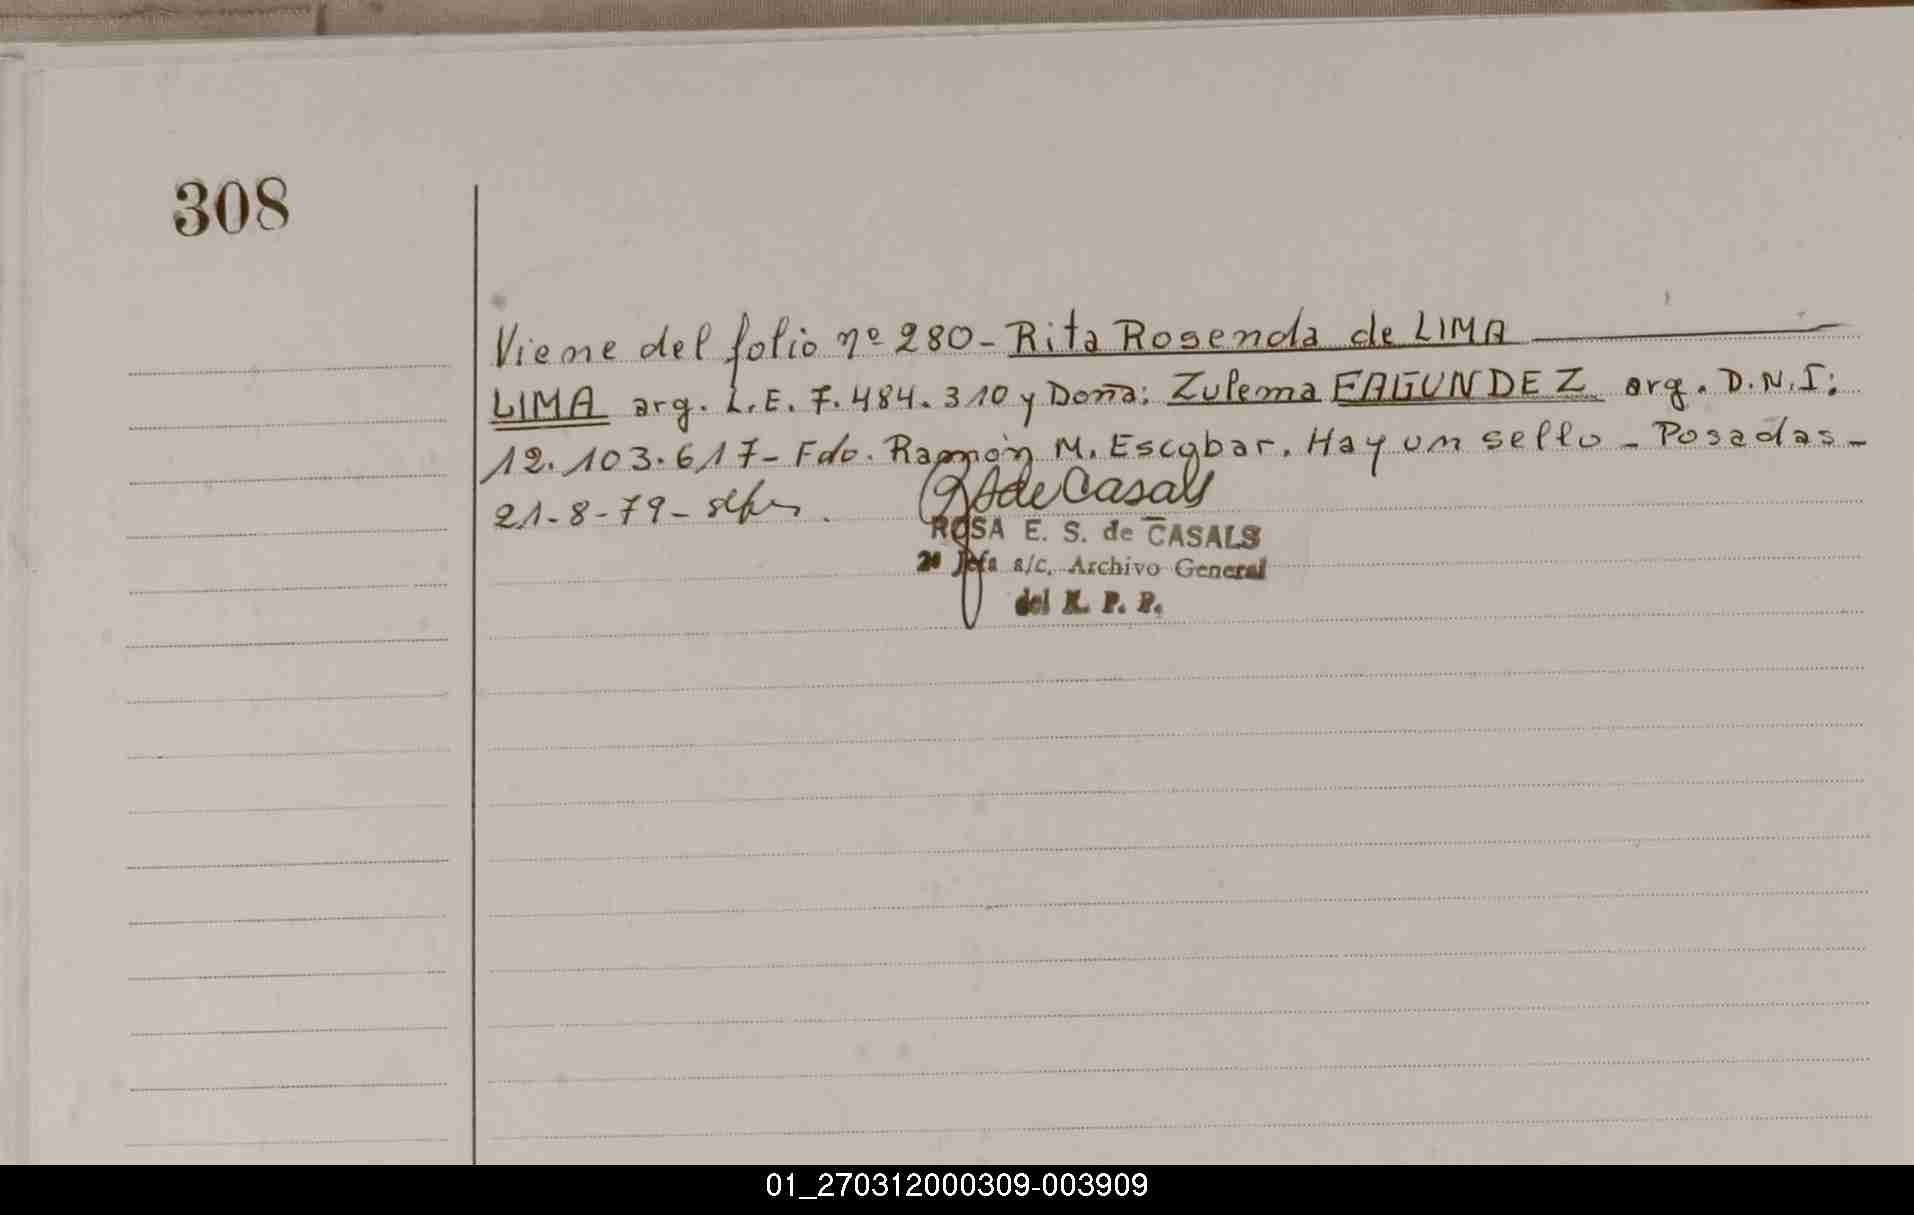 308
Viene del folio nº 280- Rita Rosenda de LIMA
LIMA arg. L.E. 7.484.310 y Doña: Zulema FAGUNDEZ arg. D.N.I:
12.103.617- Fdo. Ramón M. Escobar. Hay un sello - Posadas-
21-8-79-
de Casals
ROSA E. S. de CASALS
2ª Jefa a/c. Archivo General
del R. P. P.
01_270312000309-003909